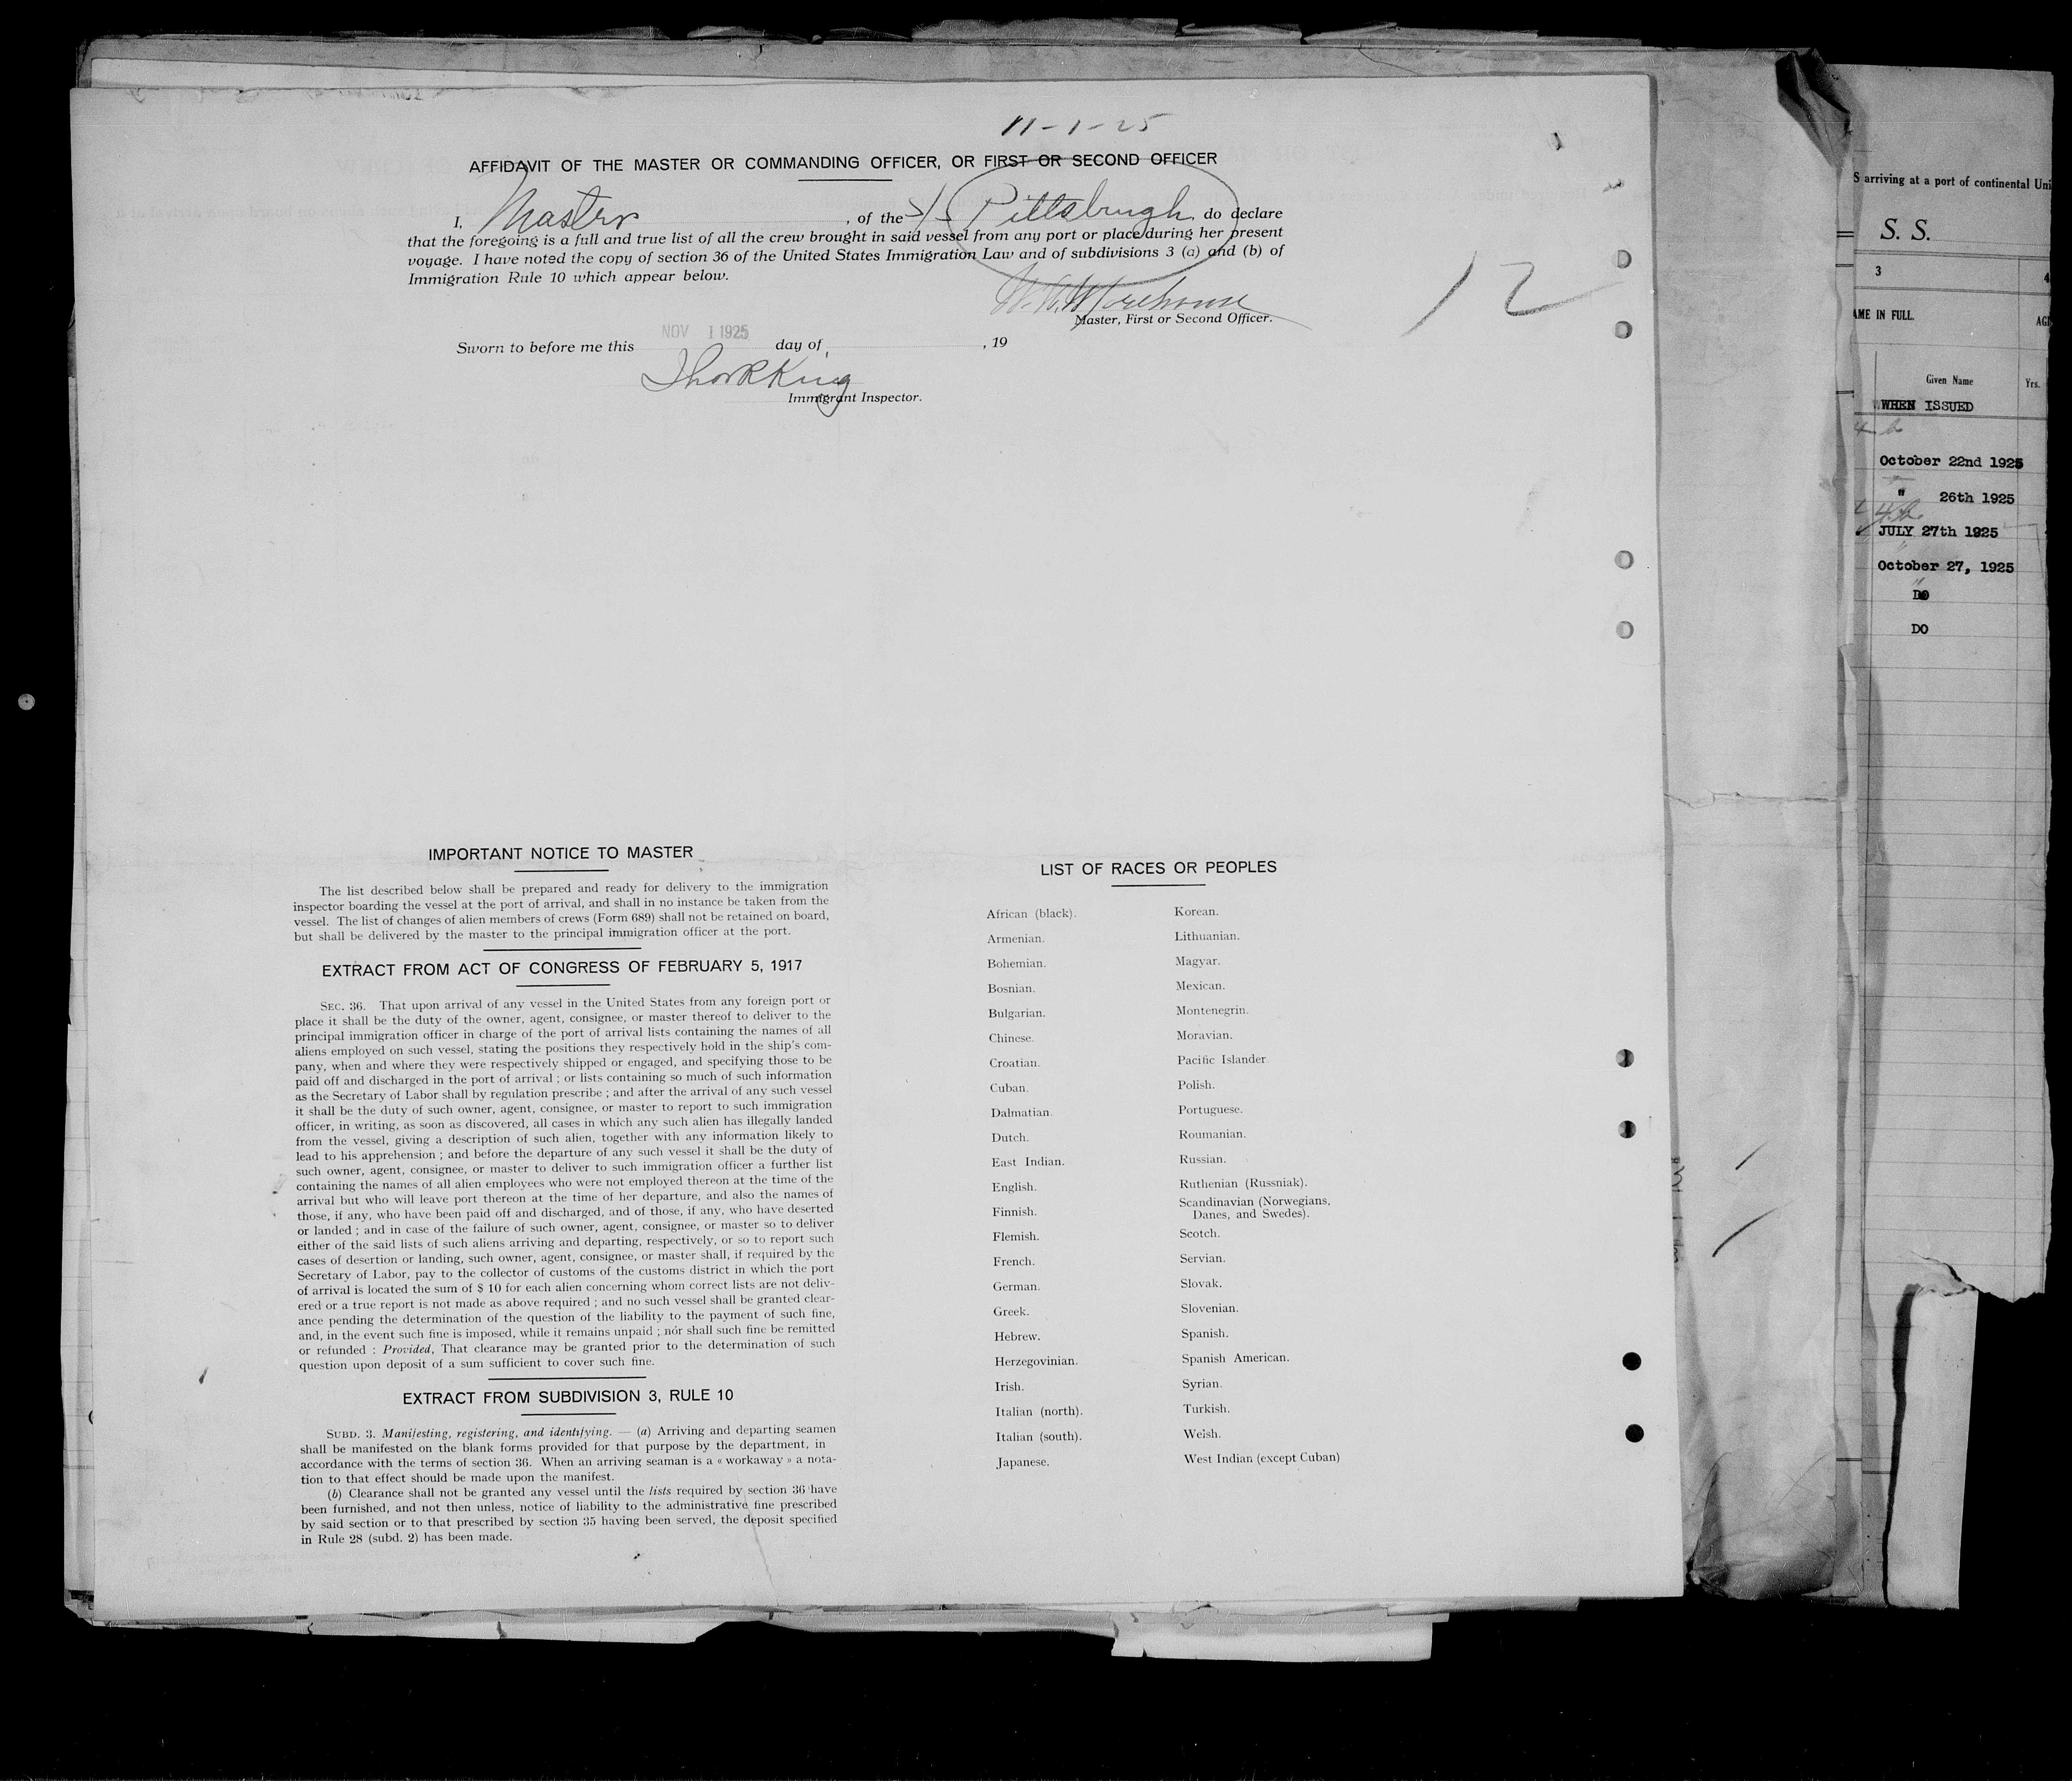 11-1-25
AFFIDAVIT OF THE MASTER OR COMMANDING OFFICER, OR FIRST OR SECOND OFFICER
I, Master, of the S/S Pittsburgh, do declare
that the foregoing is a full and true list of all the crew brought in said vessel from any port or place during her present
voyage. I have noted the copy of section 36 of the United States Immigration Law and of subdivisions 3 (a) and (b) of
Immigration Rule 10 which appear below.
12
Master, First or Second Officer.
Sworn to before me this NOV 1 1925 day of , 19
King
Immigrant Inspector.
IMPORTANT NOTICE TO MASTER
The list described below shall be prepared and ready for delivery to the immigration
inspector boarding the vessel at the port of arrival, and shall in no instance be taken from the
vessel. The list of changes of alien members of crews (Form 689) shall not be retained on board,
but shall be delivered by the master to the principal immigration officer at the port.
EXTRACT FROM ACT OF CONGRESS OF FEBRUARY 5, 1917
SEC. 36. That upon arrival of any vessel in the United States from any foreign port or
place it shall be the duty of the owner, agent, consignee, or master thereof to deliver to the
principal immigration officer in charge of the port of arrival lists containing the names of all
aliens employed on such vessel, stating the positions they respectively hold in the ship's com-
pany, when and where they were respectively shipped or engaged, and specifying those to be
paid off and discharged in the port of arrival ; or lists containing so much of such information
as the Secretary of Labor shall by regulation prescribe ; and after the arrival of any such vessel
it shall be the duty of such owner, agent, consignee, or master to report to such immigration
officer, in writing, as soon as discovered, all cases in which any such alien has illegally landed
from the vessel, giving a description of such alien, together with any information likely to
lead to his apprehension ; and before the departure of any such vessel it shall be the duty of
such owner, agent, consignee, or master to deliver to such immigration officer a further list
containing the names of all alien employees who were not employed thereon at the time of the
arrival but who will leave port thereon at the time of her departure, and also the names of
those, if any, who have been paid off and discharged, and of those, if any, who have deserted
or landed ; and in case of the failure of such owner, agent, consignee, or master so to deliver
either of the said lists of such aliens arriving and departing, respectively, or so to report such
cases of desertion or landing, such owner, agent, consignee, or master shall, if required by the
Secretary of Labor, pay to the collector of customs of the customs district in which the port
of arrival is located the sum of $ 10 for each alien concerning whom correct lists are not deliv-
ered or a true report is not made as above required ; and no such vessel shall be granted clear-
ance pending the determination of the question of the liability to the payment of such fine,
and, in the event such fine is imposed, while it remains unpaid ; nor shall such fine be remitted
or refunded : Provided, That clearance may be granted prior to the determination of such
question upon deposit of a sum sufficient to cover such fine.
EXTRACT FROM SUBDIVISION 3, RULE 10
SUBD. 3. Manifesting, registering, and identifying. — (a) Arriving and departing seamen
shall be manifested on the blank forms provided for that purpose by the department, in
accordance with the terms of section 36. When an arriving seaman is a « workaway » a nota-
tion to that effect should be made upon the manifest.
(b) Clearance shall not be granted any vessel until the lists required by section 36 have
been furnished, and not then unless, notice of liability to the administrative fine prescribed
by said section or to that prescribed by section 35 having been served, the deposit specified
in Rule 28 (subd. 2) has been made.
LIST OF RACES OR PEOPLES
African (black).
Armenian.
Bohemian.
Bosnian.
Bulgarian.
Chinese.
Croatian.
Cuban.
Dalmatian.
Dutch.
East Indian.
English.
Finnish.
Flemish.
French.
German.
Greek.
Hebrew.
Herzegovinian.
Irish.
Italian (north).
Italian (south).
Japanese.
Korean.
Lithuanian.
Magyar.
Mexican.
Montenegrin.
Moravian.
Pacific Islander
Polish.
Portuguese.
Roumanian.
Russian.
Ruthenian (Russniak).
Scandinavian (Norwegians,
Danes, and Swedes).
Scotch.
Servian.
Slovak.
Slovenian.
Spanish.
Spanish American.
Syrian.
Turkish.
Welsh.
West Indian (except Cuban)
S arriving at a port of continental Uni
S. S.
3 4
AME IN FULL. AG
Given Name Yrs.
WHEN ISSUED
October 22nd 1925
" 26th 1925
JULY 27th 1925
October 27, 1925
DO
DO